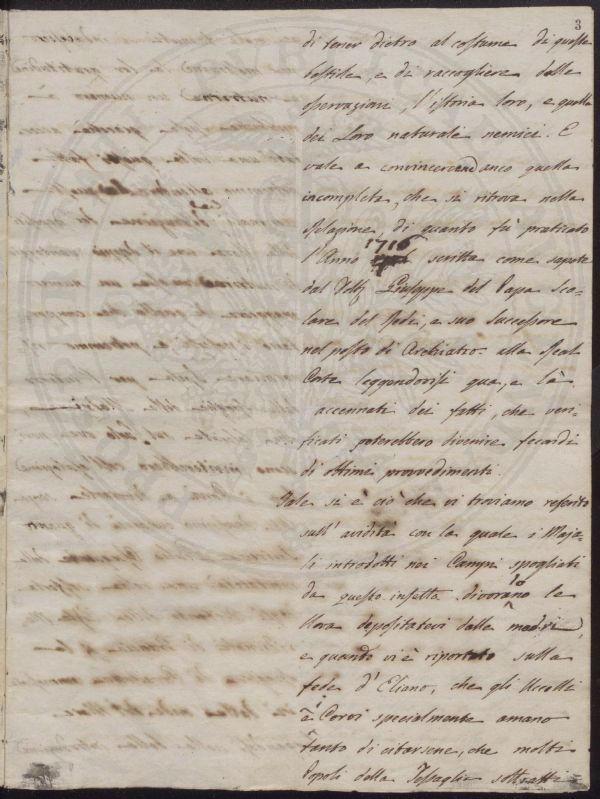 3
di tener dietro al costume di queste
bestiole, e di raccogliere dalle
osservazioni, l'istoria loro, e quella
dei Loro naturali nemici. E
vale a convincercene anco quella
incompleta, che si ritrova nella
Relazione, di quanto fù praticato
l'Anno 1716 scritta come sapete
dal Dott. Giuseppe del Papa Sco-
lare del Redi, e suo Successore
nel posto di Archiatro alla Real
Corte leggendovisi qua, e là
accennati dei fatti, che veri-
ficati potrebbero divenire fecondi
di ottimi provvedimenti.
Tale si è ciò che vi troviamo referito
sull' avidità con la quale i Maja-
li introdotti nei Campi spogliati
da questo insetto divorano le
Uova depositatevi dalle madri,
e quando vi è riportato sulla
fede d'Eliano, che gli Uccelli
e Corvi specialmente amano
tanto di cibarsene, che molti
Popoli della Tessaglia sottratti